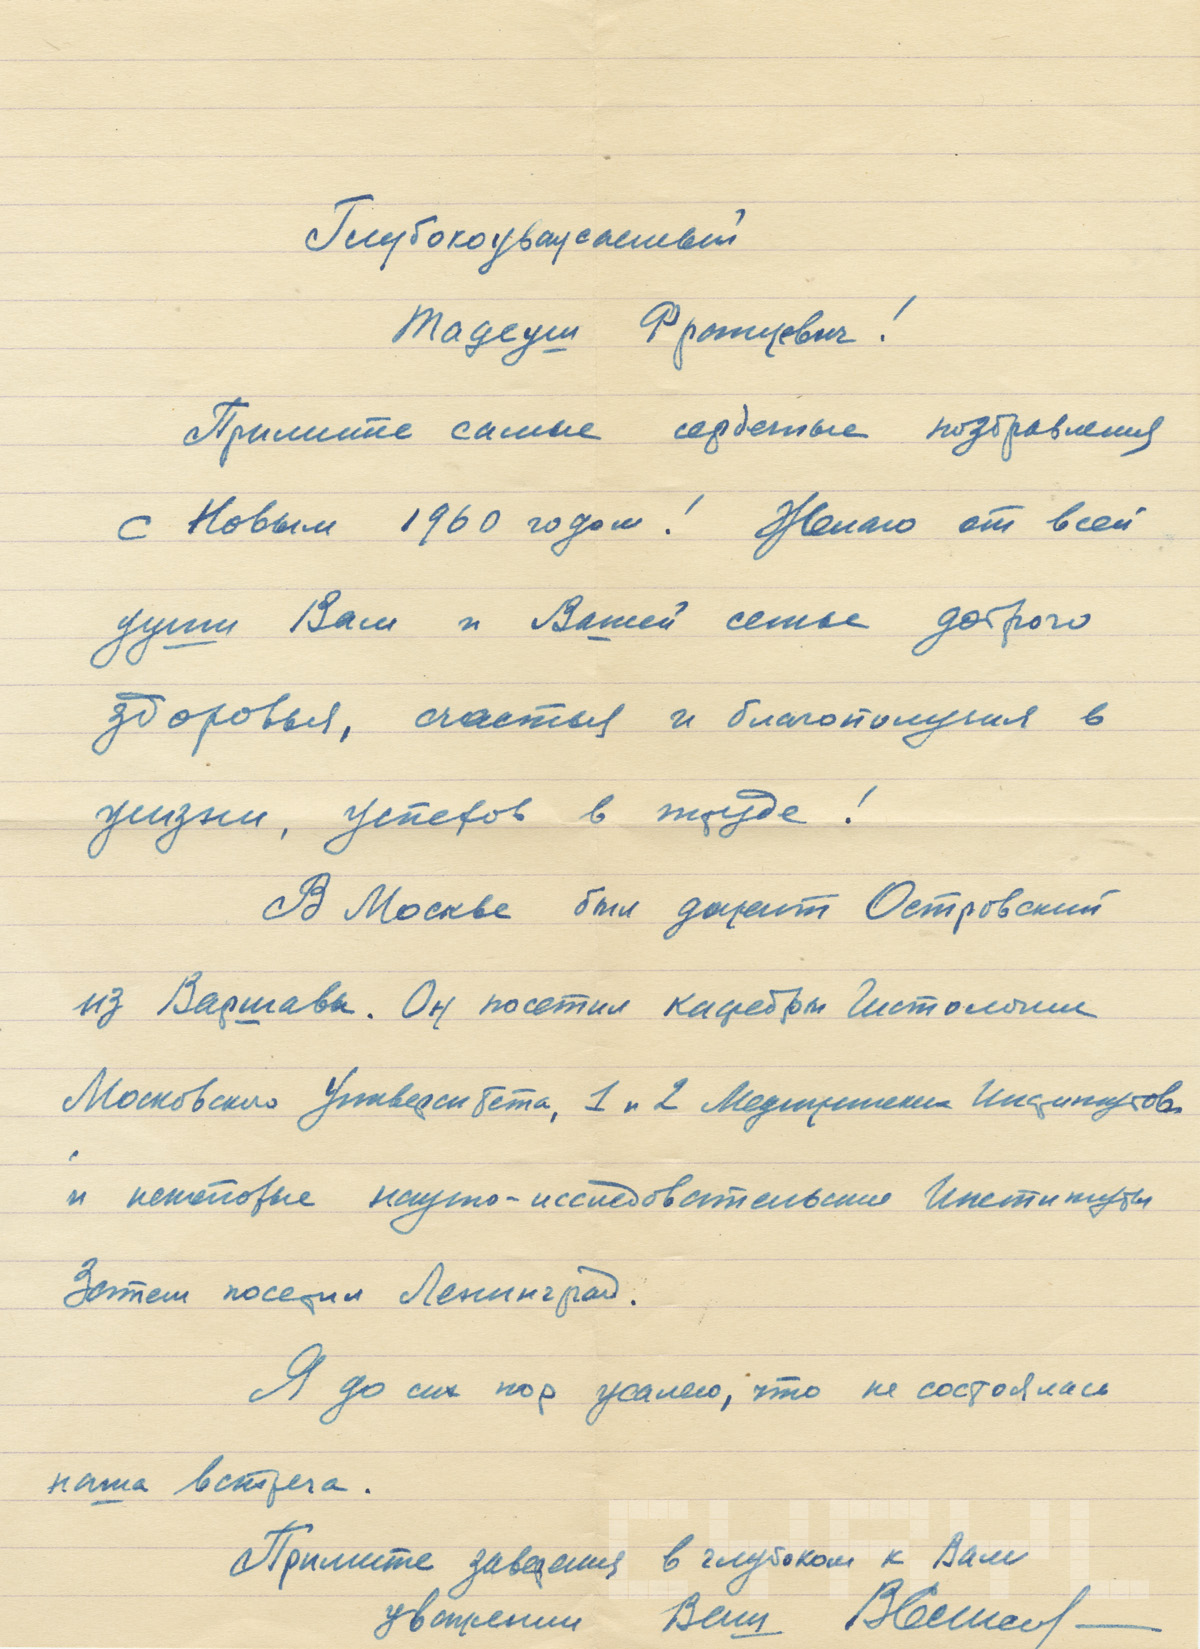 Глубокоуважаемый
Тадеуш Францевич!
Примите самые сердечные поздравления
с Новым 1960 годом! Желаю от всей
души Вам и Вашей семье доброго
здоровья, счастья и благополучия в
жизни, успехов в труде!
В Москве был доцент Островский
из Варшавы. Он посетил кафедры Гистологии
Московского Университета, 1 и 2 Медицинских Институтов
и некоторые научно-исследовательские Институты
Затем посетил Ленинград.
Я до сих пор жалею, что не состоялась
наша встреча.
Примите заверения в глубоком к Вам
уважении Ваш